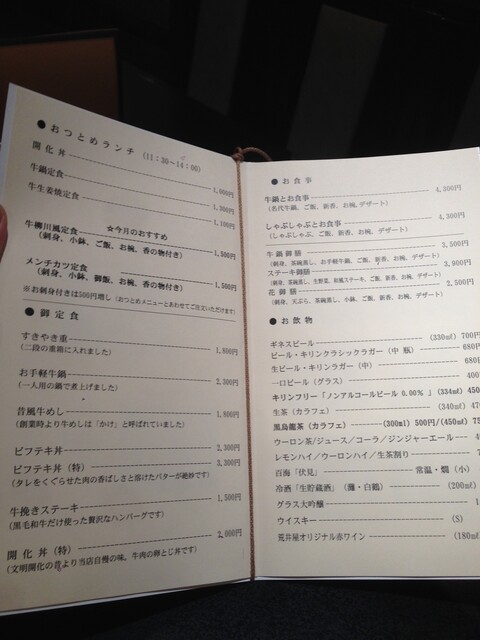 ●おつとめランチ (11:30~14:00)
開化丼 1,000円
牛鍋定食 1,300円
牛生姜焼定食 1,100円
☆今月のおすすめ
牛柳川風定食 1,500円
(刺身、小鉢、ご飯、お椀、香の物付き)
メンチカツ定食 1,500円
(刺身、小鉢、御飯、お椀、香の物付き)
※お刺身付きは500円増し (おつとめメニューとあわせてご注文いただけます)
●御定食
すきやき重 1,800円
(二段の重箱に入れました)
お手軽牛鍋 2,300円
(一人用の鍋で煮上げました)
昔風牛めし 1,800円
(創業時より牛めしは「かけ」と呼ばれていました)
ビフテキ丼 2,300円
ビフテキ丼 (特) 3,300円
(タレをくぐらせた肉の香ばしさと溶けたバターが絶妙です)
牛挽きステーキ 1,500円
(黒毛和牛だけ使った贅沢なハンバーグです)
開化丼 (特) 2,000円
(文明開化の昔より当店自慢の味、牛肉の卵とじ丼です)
●お食事
牛鍋とお食事 4,300円
(名代牛鍋、ご飯、新香、お椀、デザート)
しゃぶしゃぶとお食事 4,300円
(しゃぶしゃぶ、ご飯、新香、お椀、デザート)
牛鍋御膳 3,500円
(刺身、茶碗蒸し、お手軽牛鍋、ご飯、新香、お椀、デザート)
ステーキ御膳 3,900円
(刺身、茶碗蒸し、生野菜、和風ステーキ、ご飯、新香、お椀、デザート)
花御膳 2,500円
(刺身、天ぷら、茶碗蒸し、小鉢、ご飯、新香、お椀、デザート)
●お飲物
ギネスビール (330㎖) 770円
ビール・キリンクラシックラガー (中瓶) 680円
生ビール・キリンラガー (中) 680
一口ビール (グラス) 400
キリンフリー「ノンアルコールビール 0.00%」 (334㎖) 450
生茶 (カラフェ) (340㎖) 47
黒烏龍茶 (カラフェ) (300㎖) 500円/(450㎖) 75
ウーロン茶/ジュース/コーラ/ジンジャーエール 4
レモンハイ/ウーロンハイ/生茶割り 7
百海「伏見」 常温・燗 (小)
冷酒「生貯蔵酒」 (灘・白鶴) (200㎖)
グラス大吟醸 1
ウイスキー (S)
荒井屋オリジナル赤ワイン (180㎖)